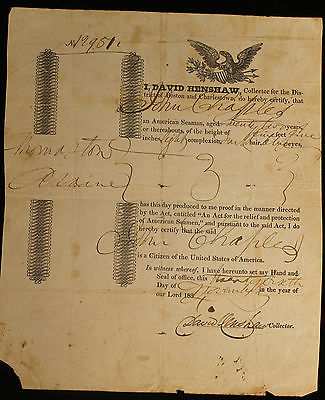 No 12951
I, DAVID HENSHAW, Collector for the Dis-
trict of Boston and Charlestown, do hereby certify, that
John Chaples
an American Seaman, aged twenty two years
or thereabouts, of the height of feet
inches, light complexion, hair, eyes,
Thomaston
Maine
has this day produced to me proof in the manner directed
by the Act, entitled "An Act for the relief and protection
of American Seamen," and pursuant to the said Act, I do
hereby certify that the said
John Chaples
is a Citizen of the United States of America.
In witness whereof, I have hereunto set my Hand and
Seal of office, this twenty sixth
Day of November in the year of
our Lord 183
David Henshaw Collector.